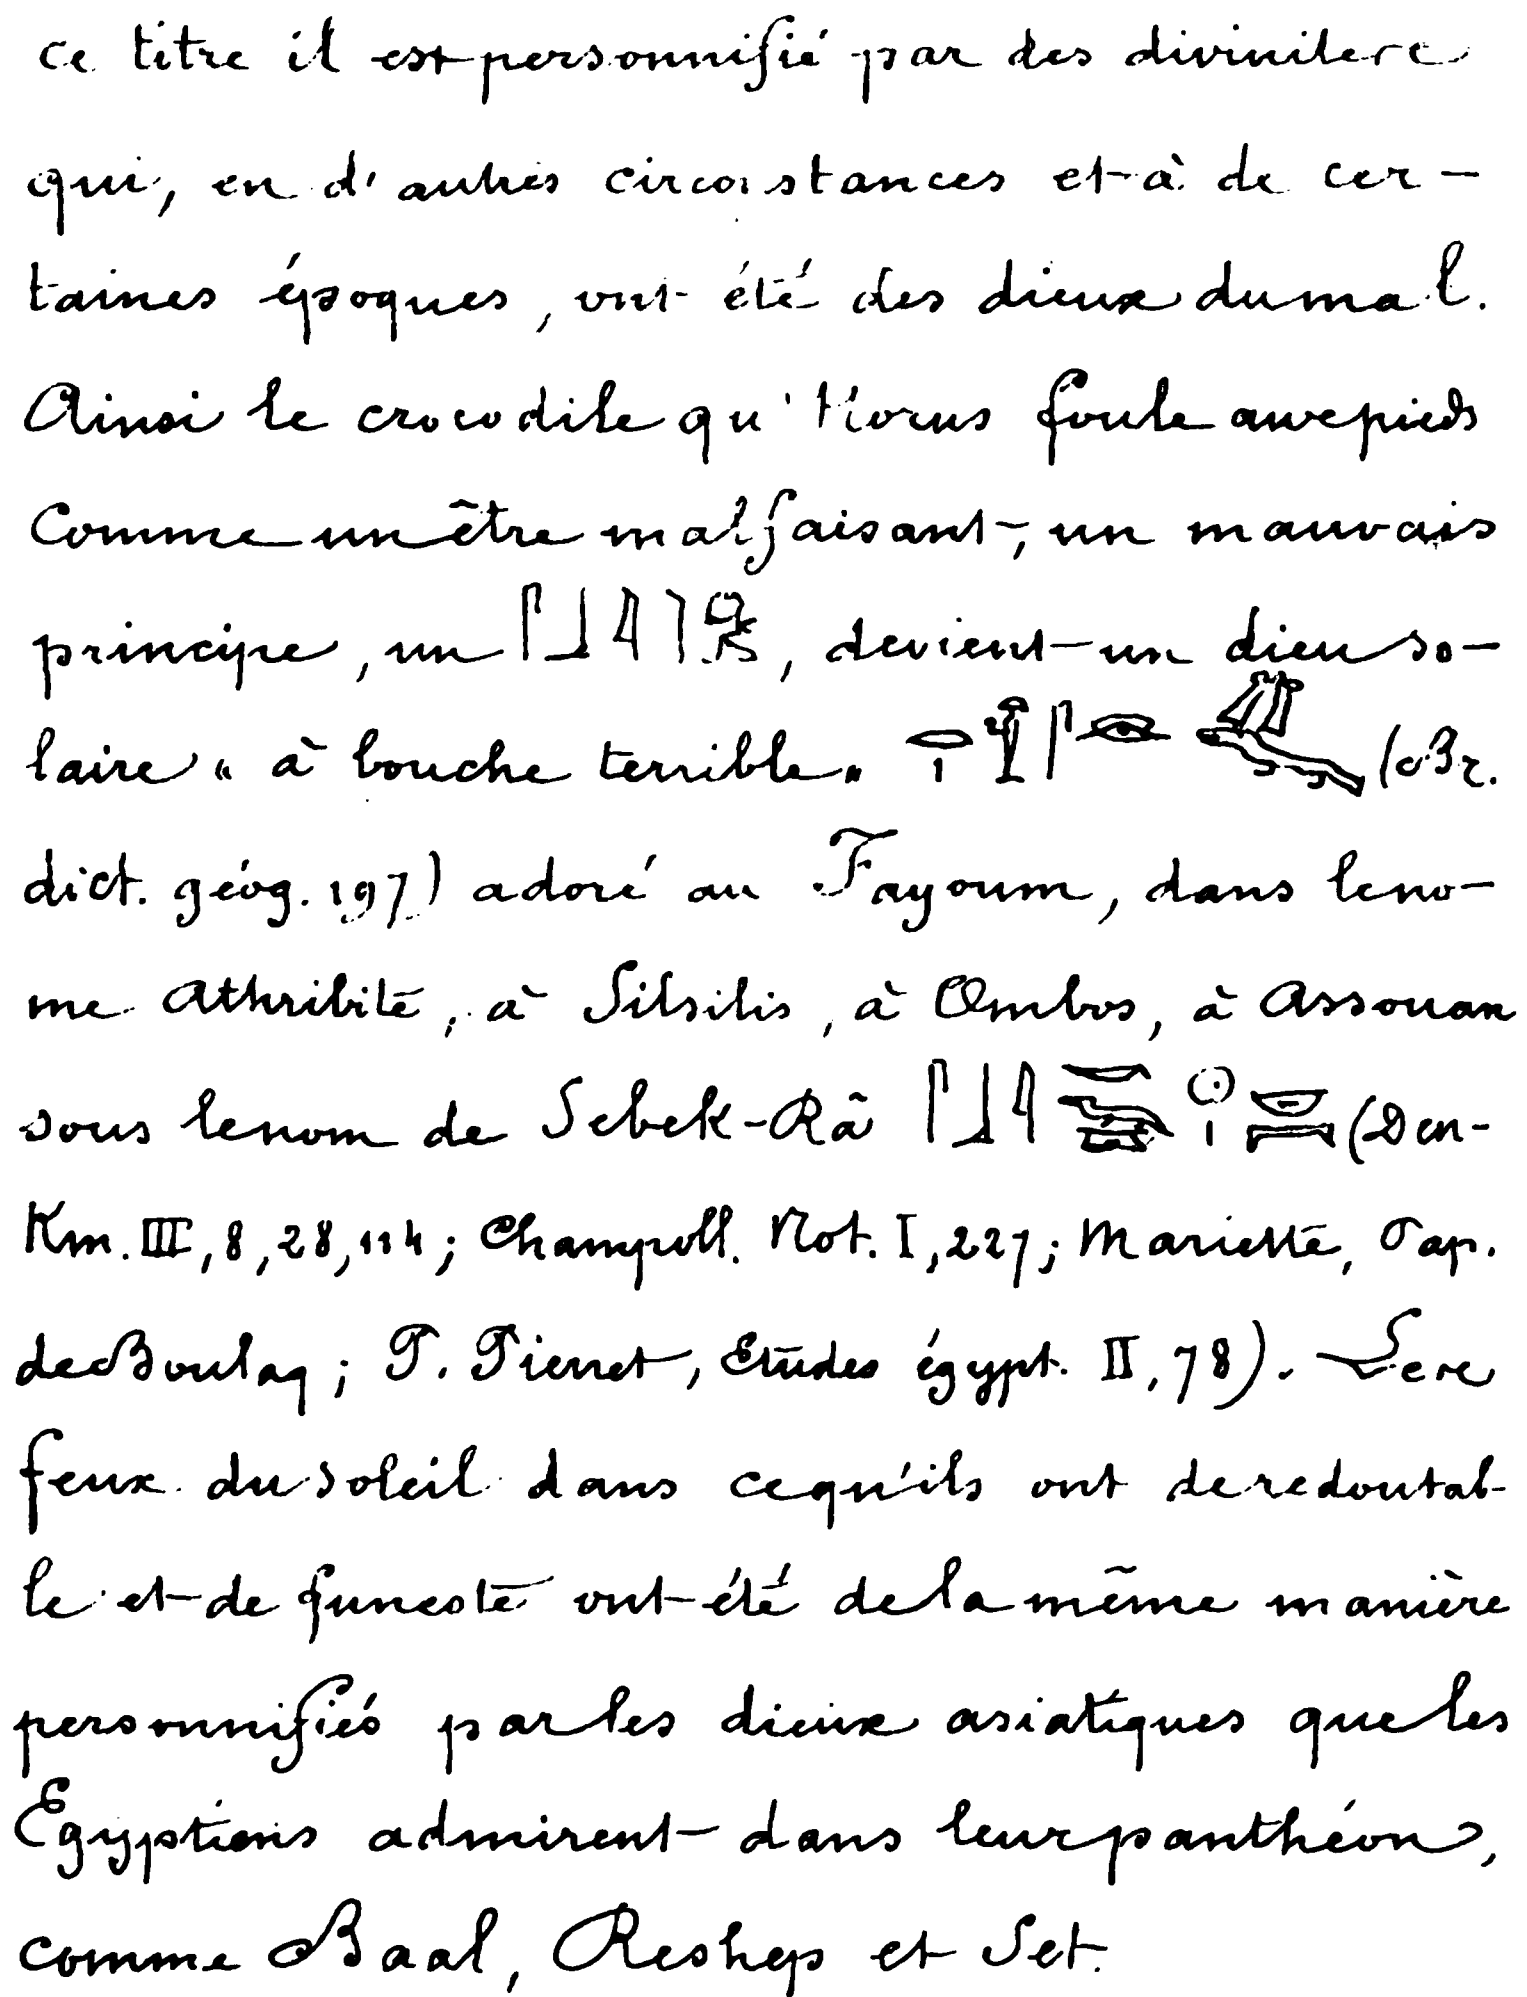 ce titre il est personnifié par des divinités
qui, en d'autres circonstances et à de cer-
taines époques, ont été des dieux du mal.
Ainsi le crocodile qu'Horus foule aux pieds
comme un être malfaisant, un mauvais
principe, un 𓋴𓃀𓇋, devient un dieu so-
laire « à bouche terrible » 𓂋𓏤 𓋴𓁹 (Br.
dict. géog. 197) adoré au Fayoum, dans le no-
me Athribite, à Silsilis, à Ombos, à Assouan
sous le nom de Sebek-Râ 𓋴𓃀𓇋𓎡𓆊𓇳𓏤 (Den-
Km. III, 8, 28, 114; Champoll. Not. I, 227; Mariette, Pap.
de Boulaq; P. Pierret, Etudes égypt. II, 78). Les
feux du soleil dans ce qu'ils ont de redoutab-
le et de funeste ont été de la même manière
personnifiés par les dieux asiatiques que les
Egyptiens admirent dans leur panthéon,
comme Baal, Reshep et Set.